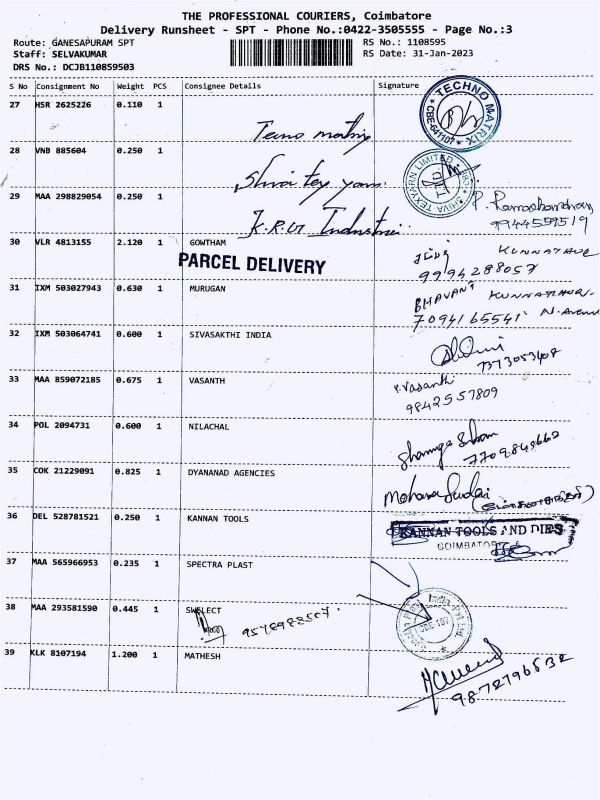 THE PROFESSIONAL COURIERS, Coimbatore
Delivery Runsheet - SPT - Phone No.:0422-3505555 - Page No.:3
Route: GANESAPURAM SPT
RS No.: 1108595
Staff: SELVAKUMAR
RS Date: 31-Jan-2023
DRS No.: DCJB110859503
S No Consignment No Weight PCS Consignee Details Signature
27 HSR 2625226 0.110 1
TECHNO MATRIX
CBE-641107
28 VNB 885604 0.250 1
SHIVA TEXYARN LIMITED
29 MAA 298829054 0.250 1
K.R.G Industri
P. Ramachandran
9944559519
30 VLR 4813155 2.120 1 GOWTHAM
PARCEL DELIVERY
KUNNATHUR
9994288057
31 IXM 503027943 0.630 1 MURUGAN
BHAVANI KUNNATHUR
7094165541
32 IXM 503064741 0.600 1 SIVASAKTHI INDIA
7373053408
33 MAA 859072185 0.675 1 VASANTH
V.Vasanthi
9842557809
34 POL 2094731 0.600 1 NILACHAL
7709843662
35 COK 21229091 0.825 1 DYANANAD AGENCIES
36 DEL 528781521 0.250 1 KANNAN TOOLS
KANNAN TOOLS AND DIES
COIMBATORE
37 MAA 565966953 0.235 1 SPECTRA PLAST
38 MAA 293581590 0.445 1 SWELECT
9578988507
39 KLK 8107194 1.200 1 MATHESH
9872796832